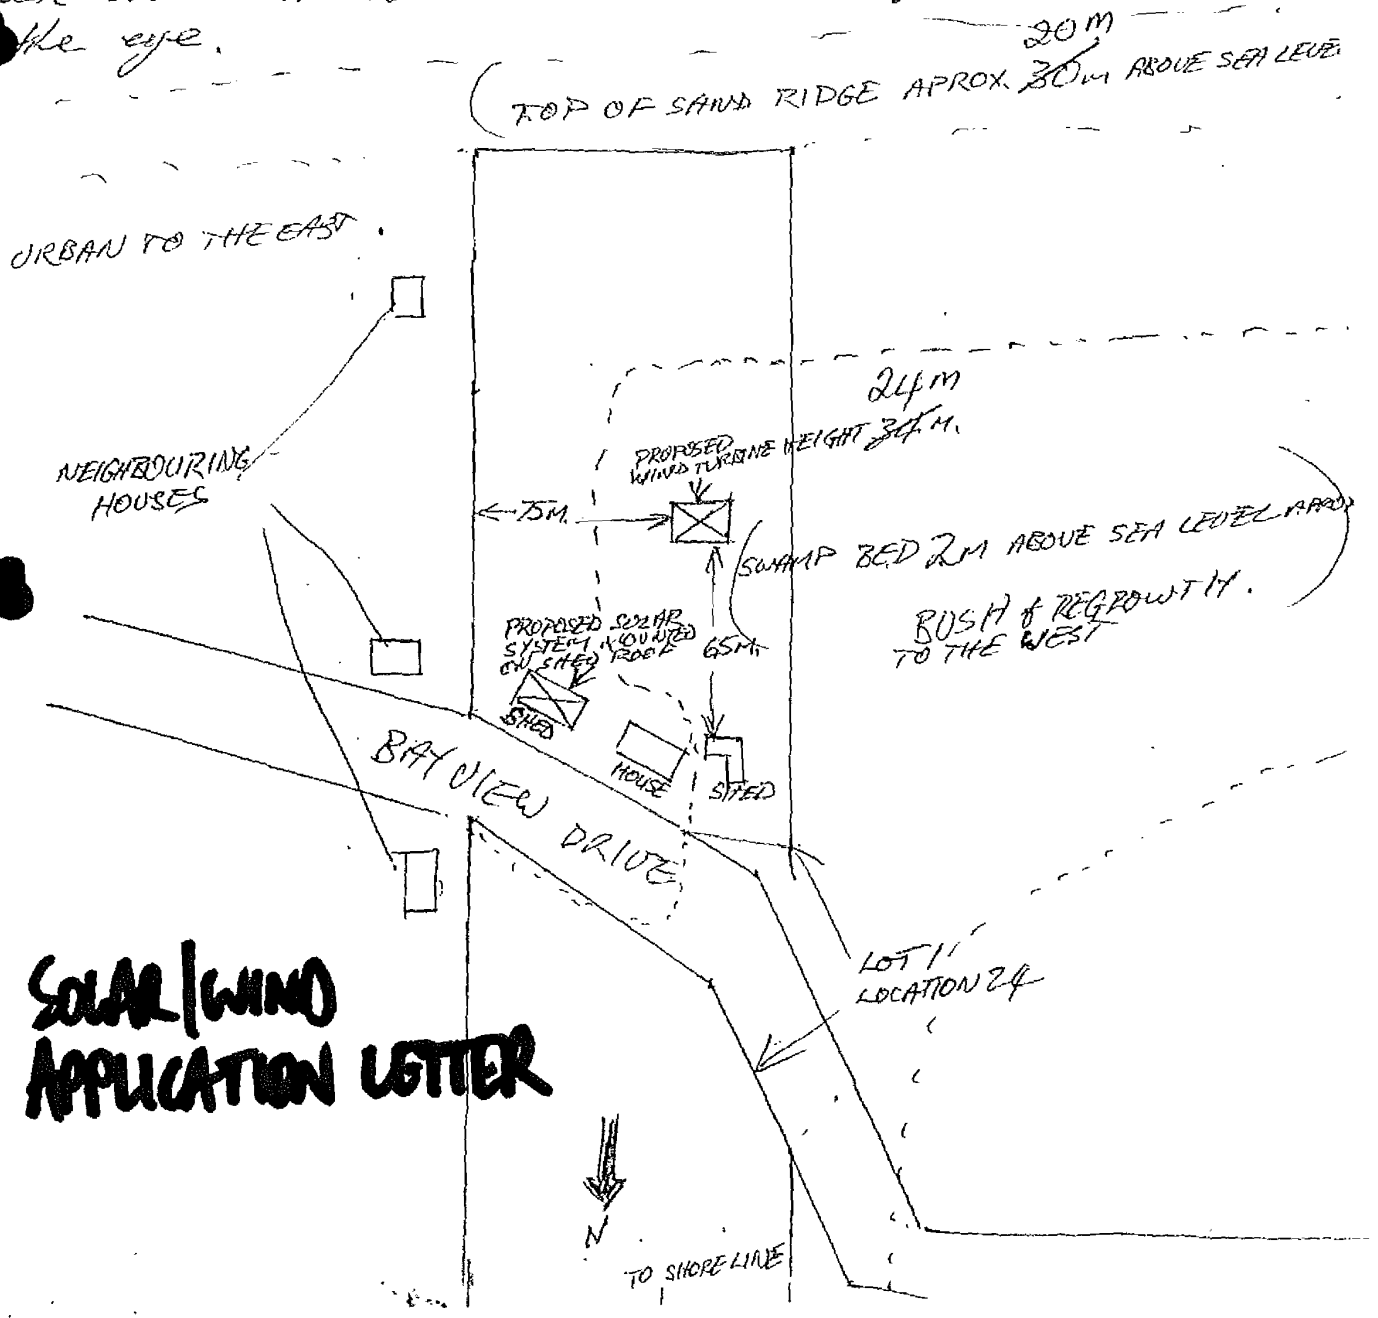 the eye.
20M
TOP OF SAND RIDGE APROX. 30M ABOVE SEA LEVEL
URBAN TO THE EAST.
24M
PROPOSED
WIND TURBINE HEIGHT 34M.
NEIGHBOURING
HOUSES
75M.
SWAMP BED 2M ABOVE SEA LEVEL APROX
BUSH & REGROWTH.
TO THE WEST
PROPOSED SOLAR
SYSTEM MOUNTED
ON SHED ROOF
65M.
SHED
HOUSE
SHED
BAYVIEW DRIVE
LOT 1
LOCATION 24
SOLAR/WIND
APPLICATION LETTER
N
TO SHORELINE